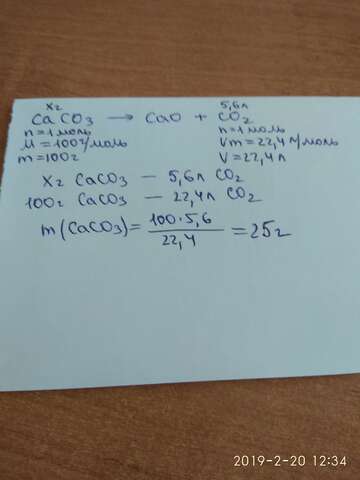 xг 5,6л
CaCO₃ → CaO + CO₂
n=1 моль n=1 моль
M=100г/моль Vm=22,4 л/моль
m=100г V=22,4л
xг CaCO₃ — 5,6л CO₂
100г CaCO₃ — 22,4л CO₂
m(CaCO₃)= 100·5,6 / 22,4 = 25г
2019-2-20 12:34